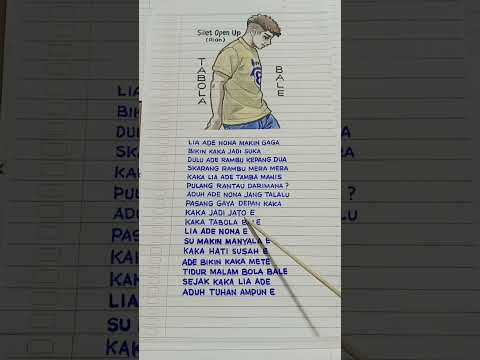 Silet Open Up
(Rian)
TABOLA
BALE
LIA ADE NONA MAKIN GAGA
BIKIN KAKA JADI SUKA
DULU ADE RAMBU KEPANG DUA
SKARANG RAMBU MERA MERA
KAKA LIA ADE TAMBA MANIS
PULANG RANTAU DARIMANA?
ADUH ADE NONA JANG TALALU
PASANG GAYA DEPAN KAKA
KAKA JADI JATO E
KAKA TABOLA BALE
LIA ADE NONA E
SU MAKIN MANYALA E
KAKA HATI SUSAH E
ADE BIKIN KAKA METE
TIDUR MALAM BOLA BALE
SEJAK KAKA LIA ADE
ADUH TUHAN AMPUN E
LIA
SU M
KAKA